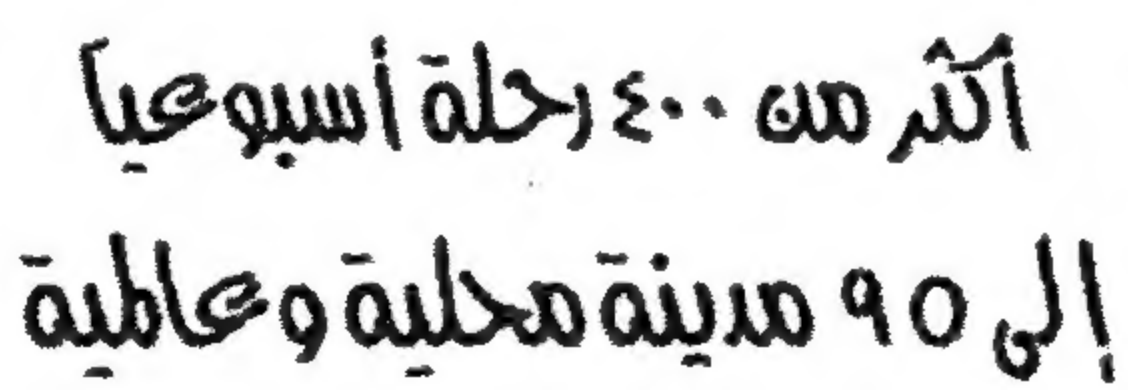 أكثر من ٤٠٠ رحلة أسبوعياً
إلى ٩٥ مدينة محلية وعالمية